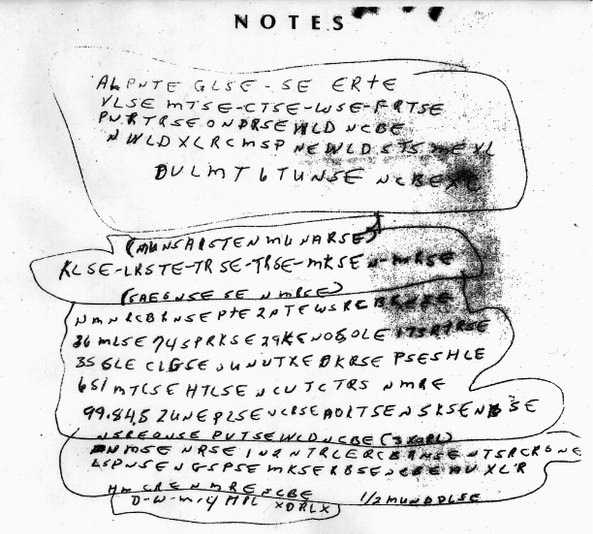 NOTES
ALPNTE GLSE-SE ERTE
VLSE MTSE-CTSE-WSE-FRTSE
PNRTRSEONDRSEWLD NCBE
NWLDXLRCMSP NEWLDSTSMEXL
DULMT6TUNSE NCBEXC
(MUNSAISTENMUNARSE)
KLSE-LRSTE-TRSE-TRSE-MKSEN-MRSE
(SAEGNSESE NMRSE)
NMNRCBRNSEPTE2PTEWSRCBRNSE
36MLSE74SPRKSE29KENOSOLE173RTRSE
35GLE CLGSEUNUTXEDKRSE PSESHLE
651MTCSE HTLSE NCUTCTRS NMRE
99.84.52UNEPLSENCRSEAOLTSENSKSENBSE
NSREONSE PVTSEWLDNCBE (3XORL)
NMSE NRSE IN2NTRLERCBRNSENTSRCRONE
LSPNSENGSPSEMKSERBSENCBEAUXLR
HM CRE NMRE NCBE 1/2MUNDDLSE
D-W-M-4 MPL XDRLX